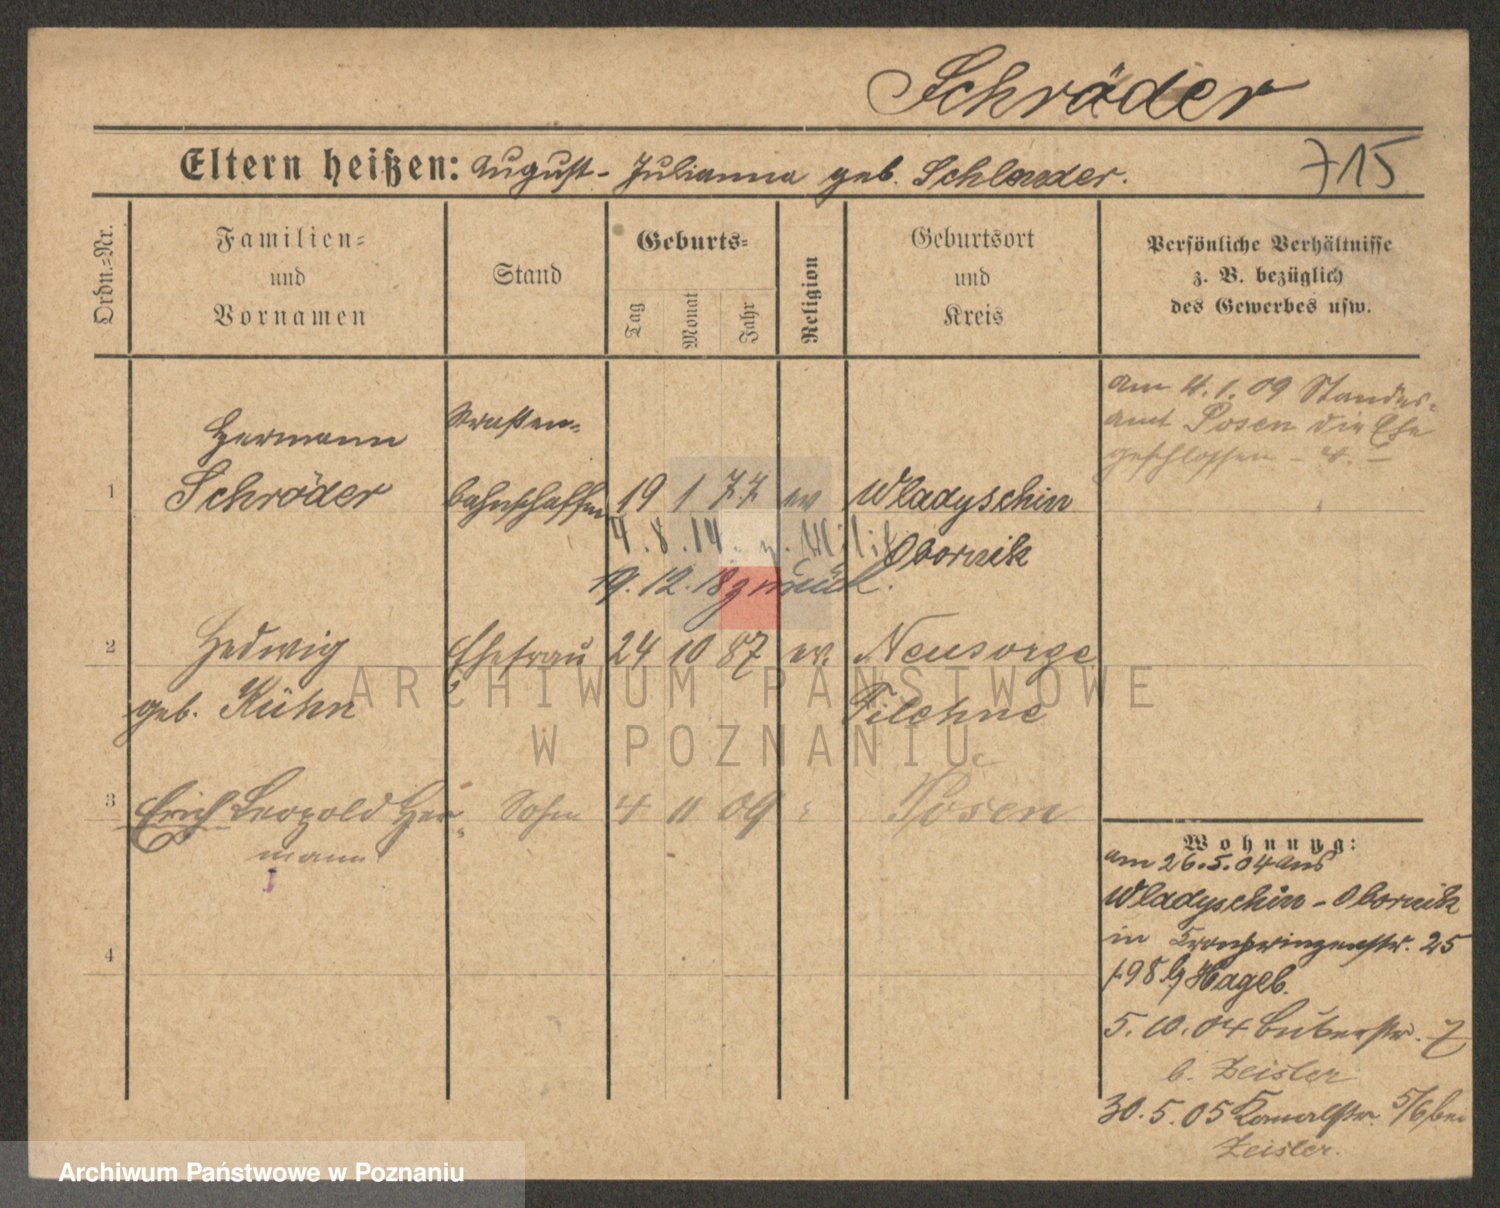 Schröder
Eltern heißen: August - Julianna geb. Schlender.
715
Ordn.-Nr.
Familien- und Vornamen
Stand
Geburts-
Tag
Monat
Jahr
Religion
Geburtsort und Kreis
Persönliche Verhältnisse
z. B. bezüglich
des Gewerbes usw.
am 4.1.09 Standes-
amt Posen die Ehe
geschlossen - 4. I
Hermann
Straßen-
1
Schröder
bahnschaffn
19 1 77 ev
Wladyschin
4.8.14. z. Milit
Obornik
19.12.18 zurück.
2
Hedwig
Ehefrau
24 10 87 ev.
Neusorge
geb. Kühn
Filehne
ARCHIWUM PAŃSTWOWE
W POZNANIU
3
Erich Leopold Her-
mann
Sohn
4 11 09
Posen
4
Wohnung:
am 26.5.04 aus
Wladyschin - Obornik
in Kronprinzenstr. 25
198 b/ Hageb.
5.10.04 Bukerstr. 7
b. Zeisler
30.5.05 Kanalstr. 5/6 bei
Zeisler.
Archiwum Państwowe w Poznaniu